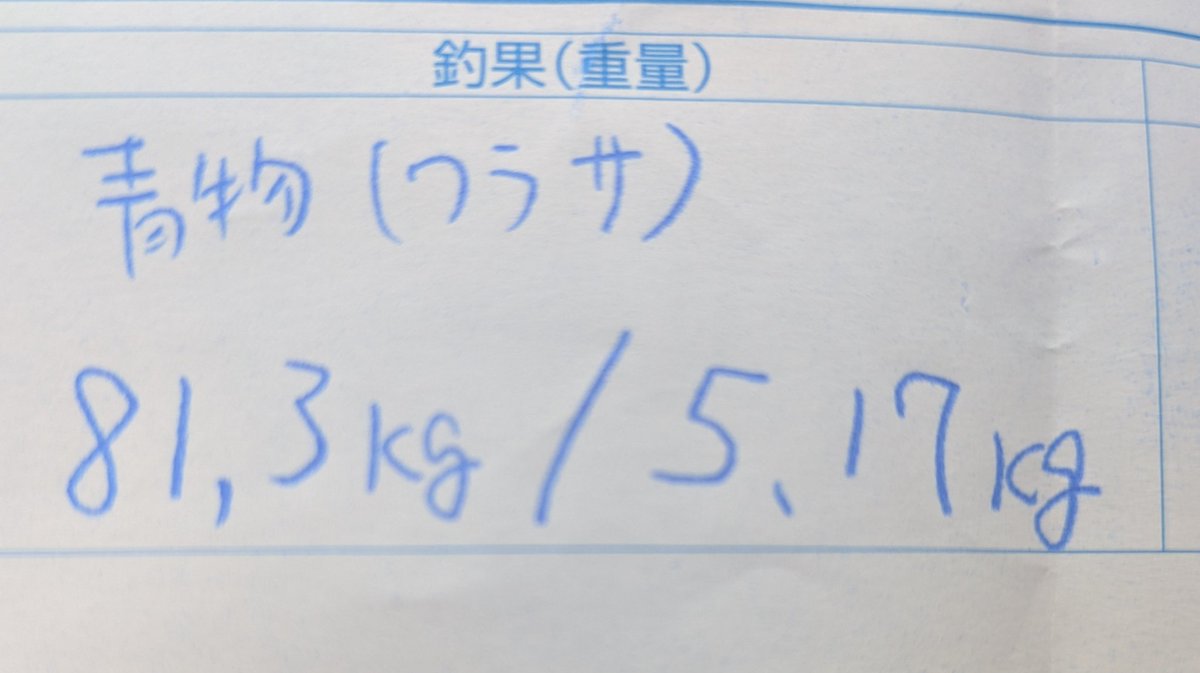 釣果(重量)
青物(ワラサ)
81,3kg/5、17kg